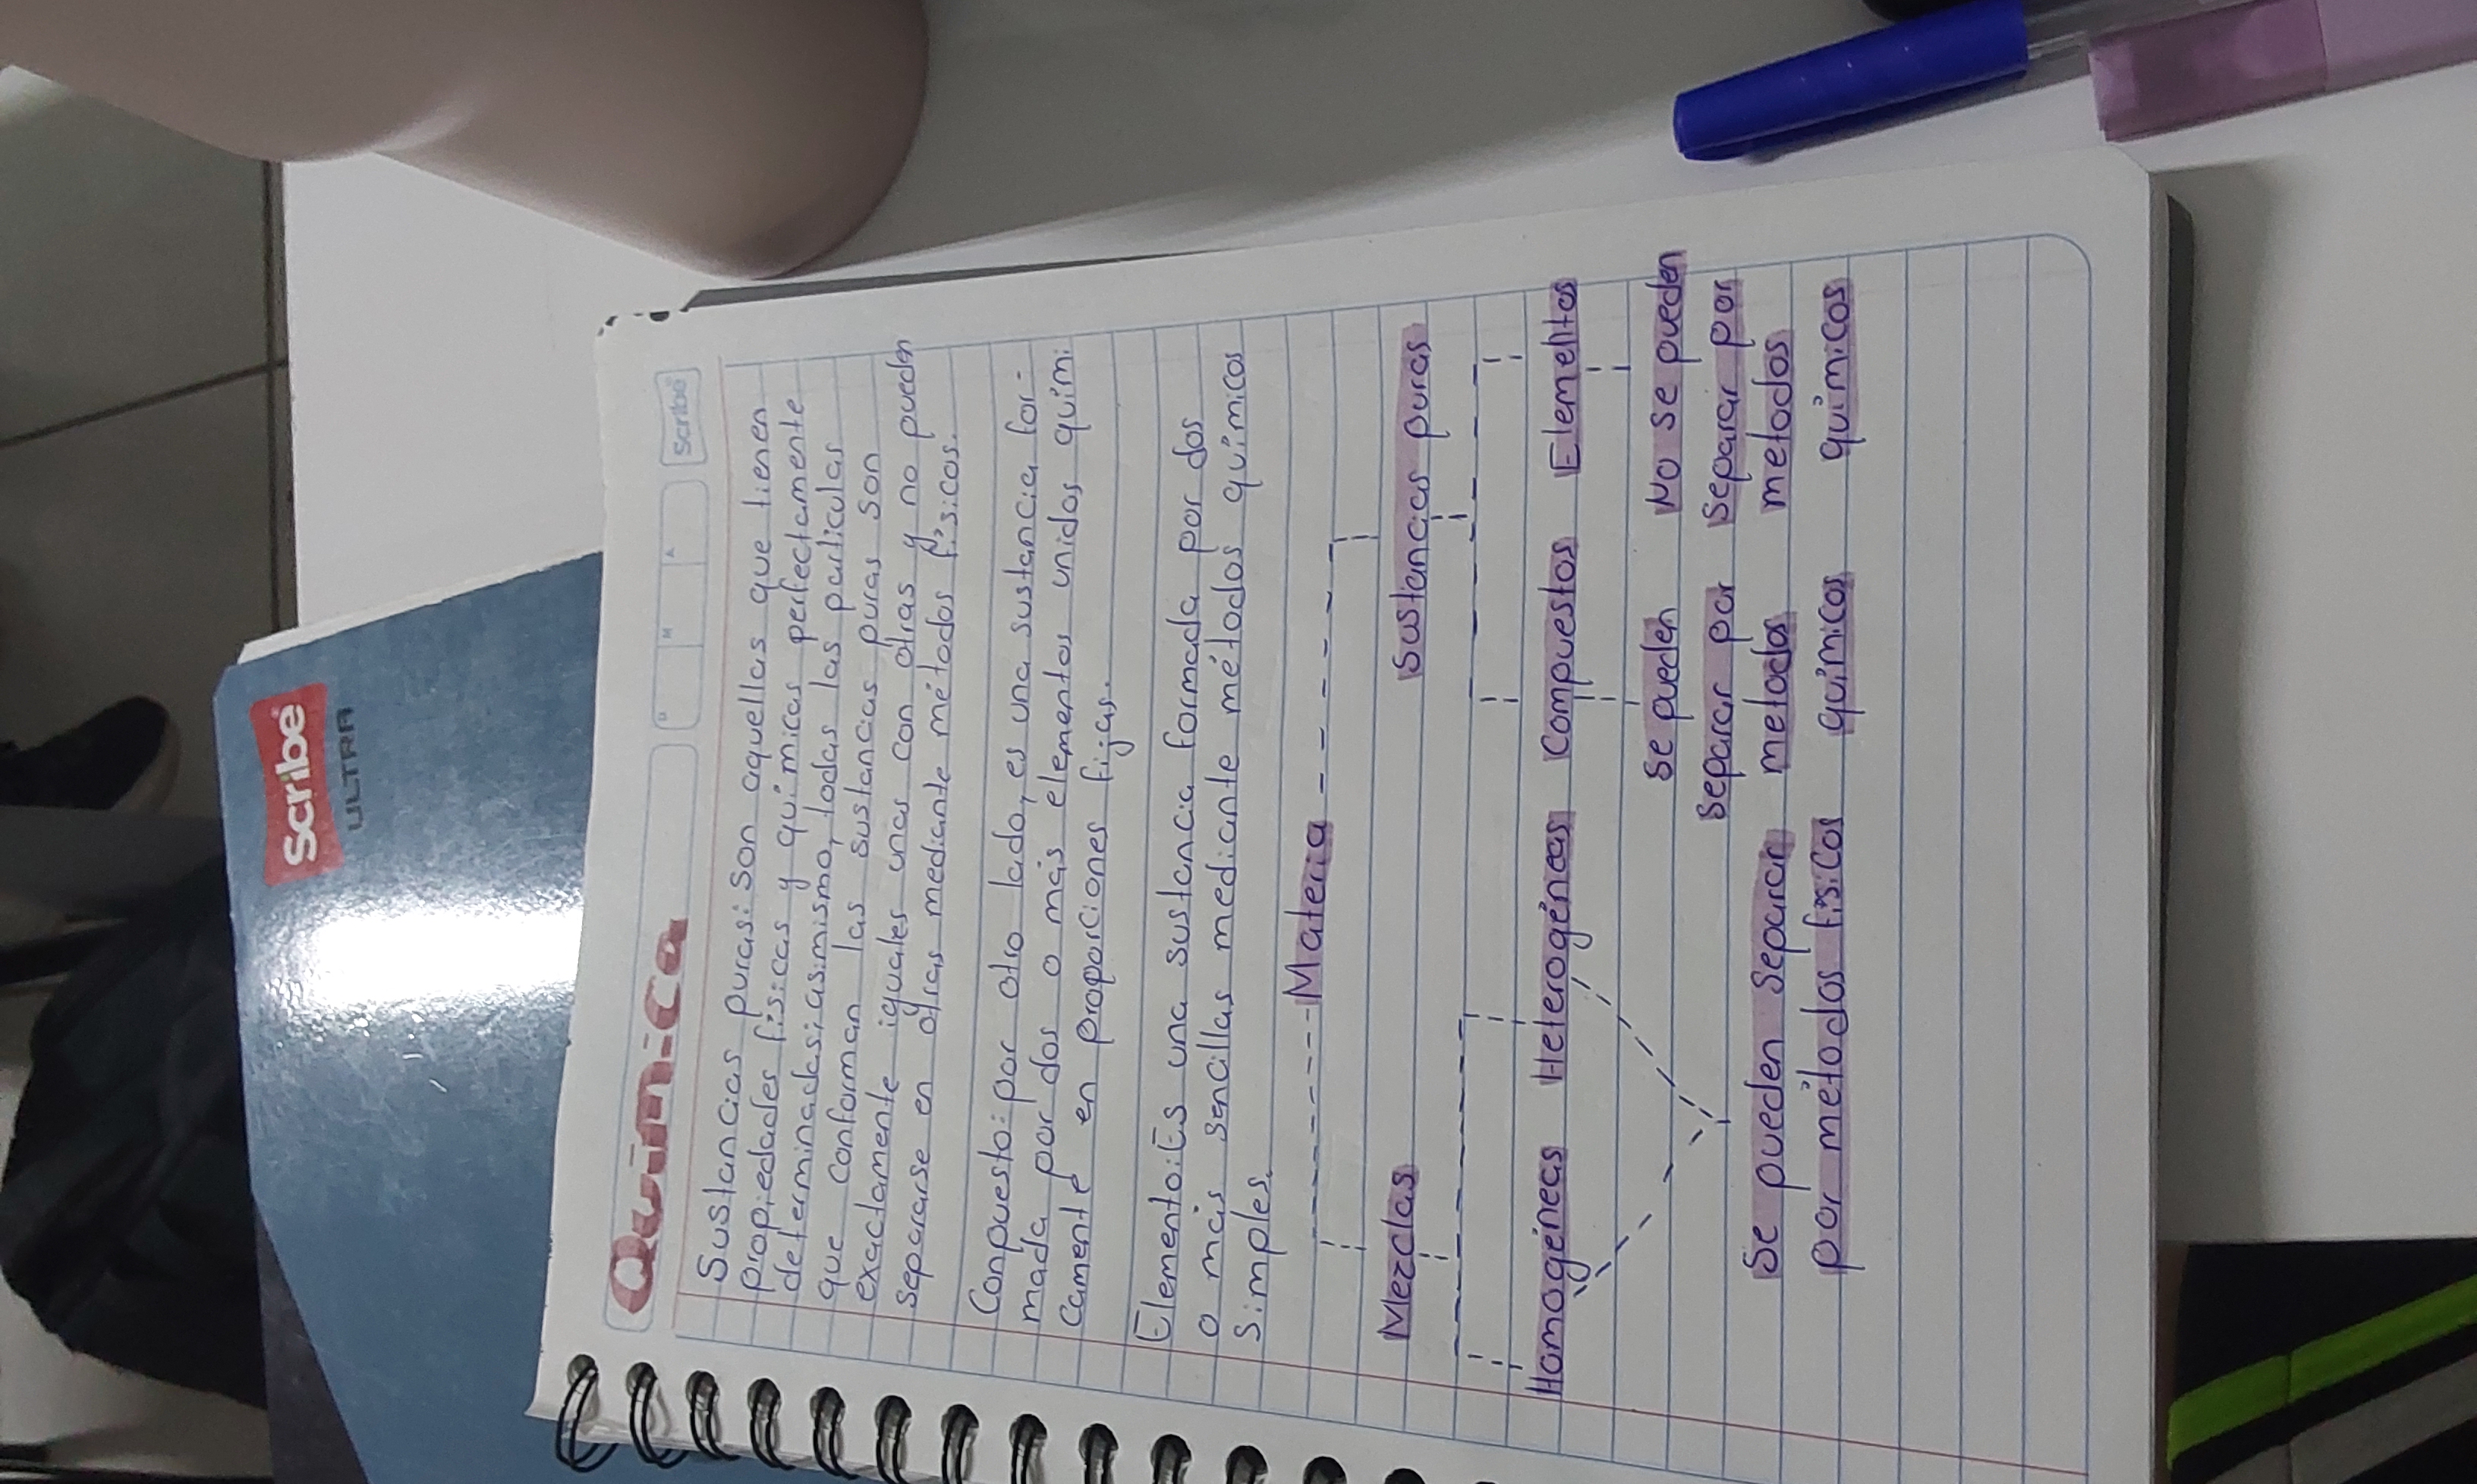 Scribe
ULTRA
Química
D M A
Scribe
Sustancias puras: Son aquellas que tienen
propiedades físicas y químicas perfectamente
determinadas; asimismo, todas las particulas
que conforman las sustancias puras son
exactamente iguales unas con otras y no pueden
separarse en otras mediante métodos físicos.
Conpuesto: por otro lado, es una sustancia for-
mada por dos o más elementos unidos quími
camente en proporciones fijas.
Elemento: Es una sustancia formada por dos
o más sencillas mediante métodos químicos
simples.
Materia
Mezclas Sustancias puras
Homogéneas Heterogéneas Compuestos Elementos
Se pueden No se pueden
separar por separar por
Se pueden separar metodos metodos
por métodos físicos químicos químicos